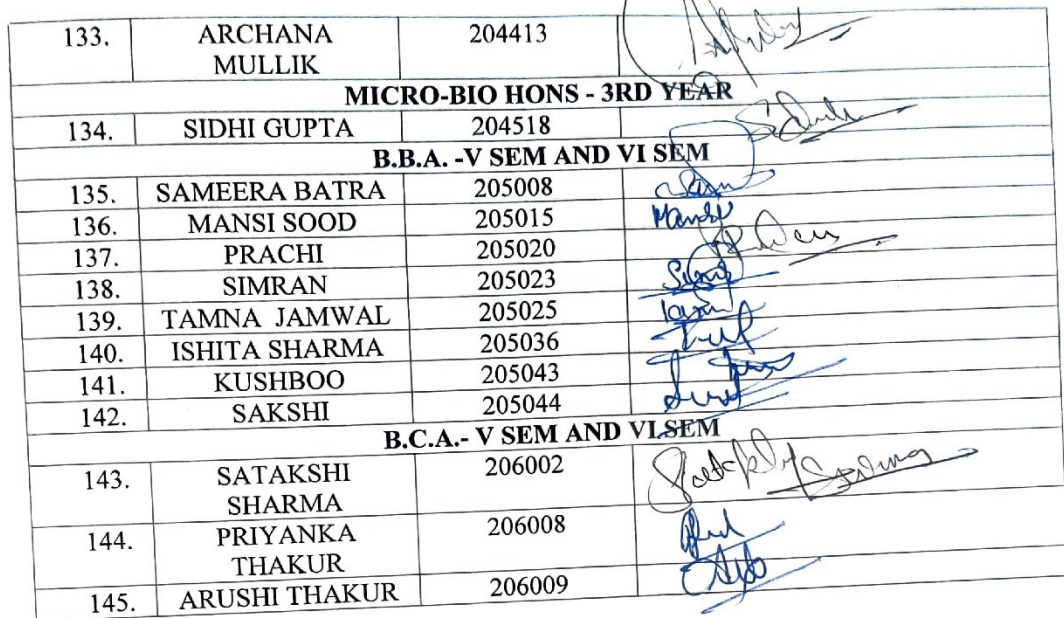 133. ARCHANA 204413
MULLIK
MICRO-BIO HONS - 3RD YEAR
134. SIDHI GUPTA 204518
B.B.A. -V SEM AND VI SEM
135. SAMEERA BATRA 205008
136. MANSI SOOD 205015 Mansi
137. PRACHI 205020
138. SIMRAN 205023
139. TAMNA JAMWAL 205025
140. ISHITA SHARMA 205036
141. KUSHBOO 205043
142. SAKSHI 205044
B.C.A.- V SEM AND VI SEM
143. SATAKSHI 206002
SHARMA
144. PRIYANKA 206008
THAKUR
145. ARUSHI THAKUR 206009